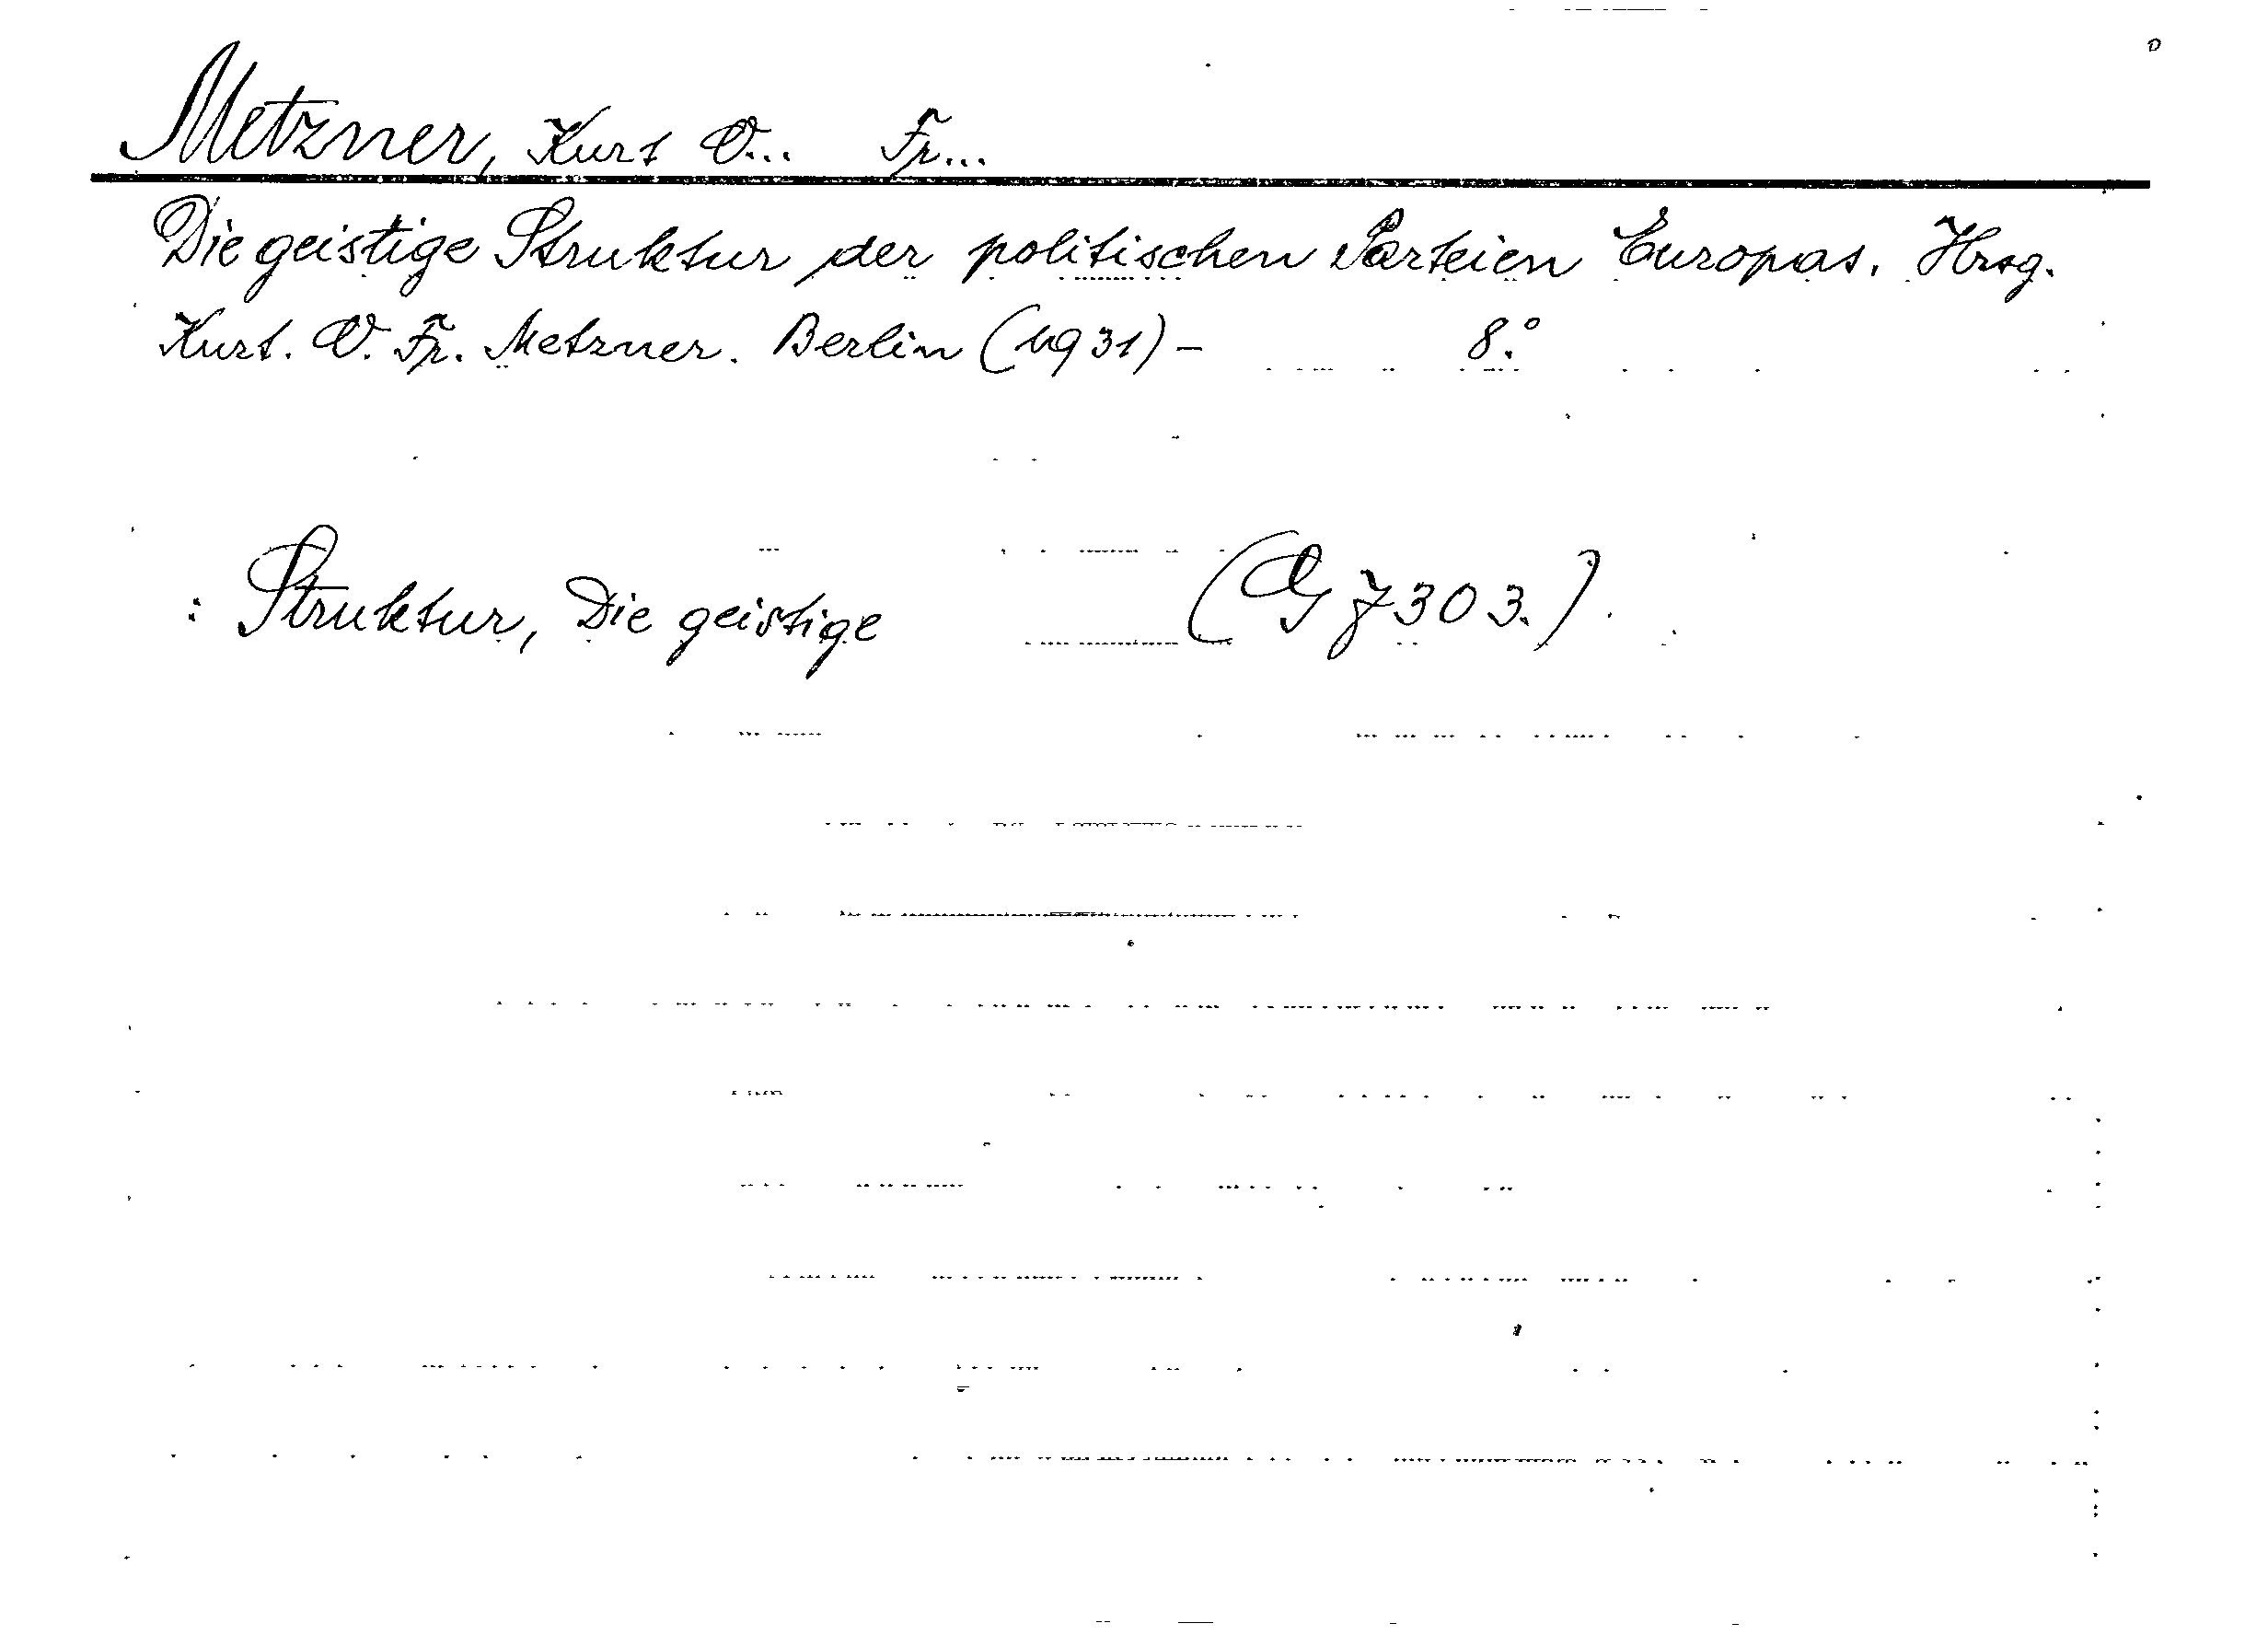 Metzner, Kurt O... Fr...
Die geistige Struktur der politischen Parteien Europas. Hrsg.
Kurt. O. Fr. Metzner. Berlin (1931) - 8.°
: Struktur, Die geistige (G 7303.)